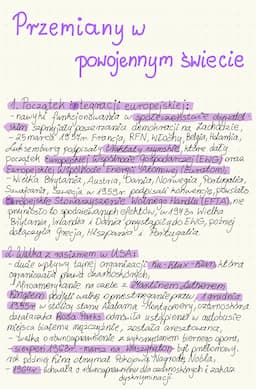 Przemiany w
powojennym świecie
1. Początek integracji europejskiej:
- nawyki funkcjonowania w społeczeństwie obywatel
skim sprzyjały poszerzaniu demokracji na Zachodzie,
- 25 marca 1957r. Francja, RFN, Włochy, Belgia, Holandia,
Luksemburg podpisały traktaty rzymskie, które dały
początek Europejskiej Wspólnocie Gospodarczej (EWG) oraz
Europejskiej Wspólnocie Energii Atomowej (Euratom),
- Wielka Brytania, Austria, Dania, Norwegia, Portugalia,
Szwajcaria, Szwecja w 1959r. podpisały konwencję, powstało
Europejskie Stowarzyszenie Wolnego Handlu (EFTA), nie
przyniosło to spodziewanych efektów, w 1973r. Wielka
Brytania, Irlandia i Dania przystąpiło do EWG, później
dołączyła Grecja, Hiszpania i Portugalia
2. Walka z rasizmem w USA:
- duże wpływy tajnej organizacji Ku-Klux-Klan, która
ograniczała prawa czarnoskórych,
- Afroamerykanie na czele z Martinem Lutherem
Kingiem podjęli walkę o równouprawnienie, 1 grudnia
1955r. w stolicy stanu Alabama - Montgomery, czarnoskóra
działaczka Rosa Parks odmówiła ustąpienia w autobusie
miejsca białemu mężczyźnie, została aresztowana,
- walka o równouprawnienie z wykorzystaniem biernego oporu,
- sierpień 1963r. - marsz na Waszyngton był przełomowy,
rok później King otrzymał Pokojową Nagrodę Nobla,
- 1964r. ustawa o równouprawnieniu dla czarnoskórych i zakaz
dyskryminacji